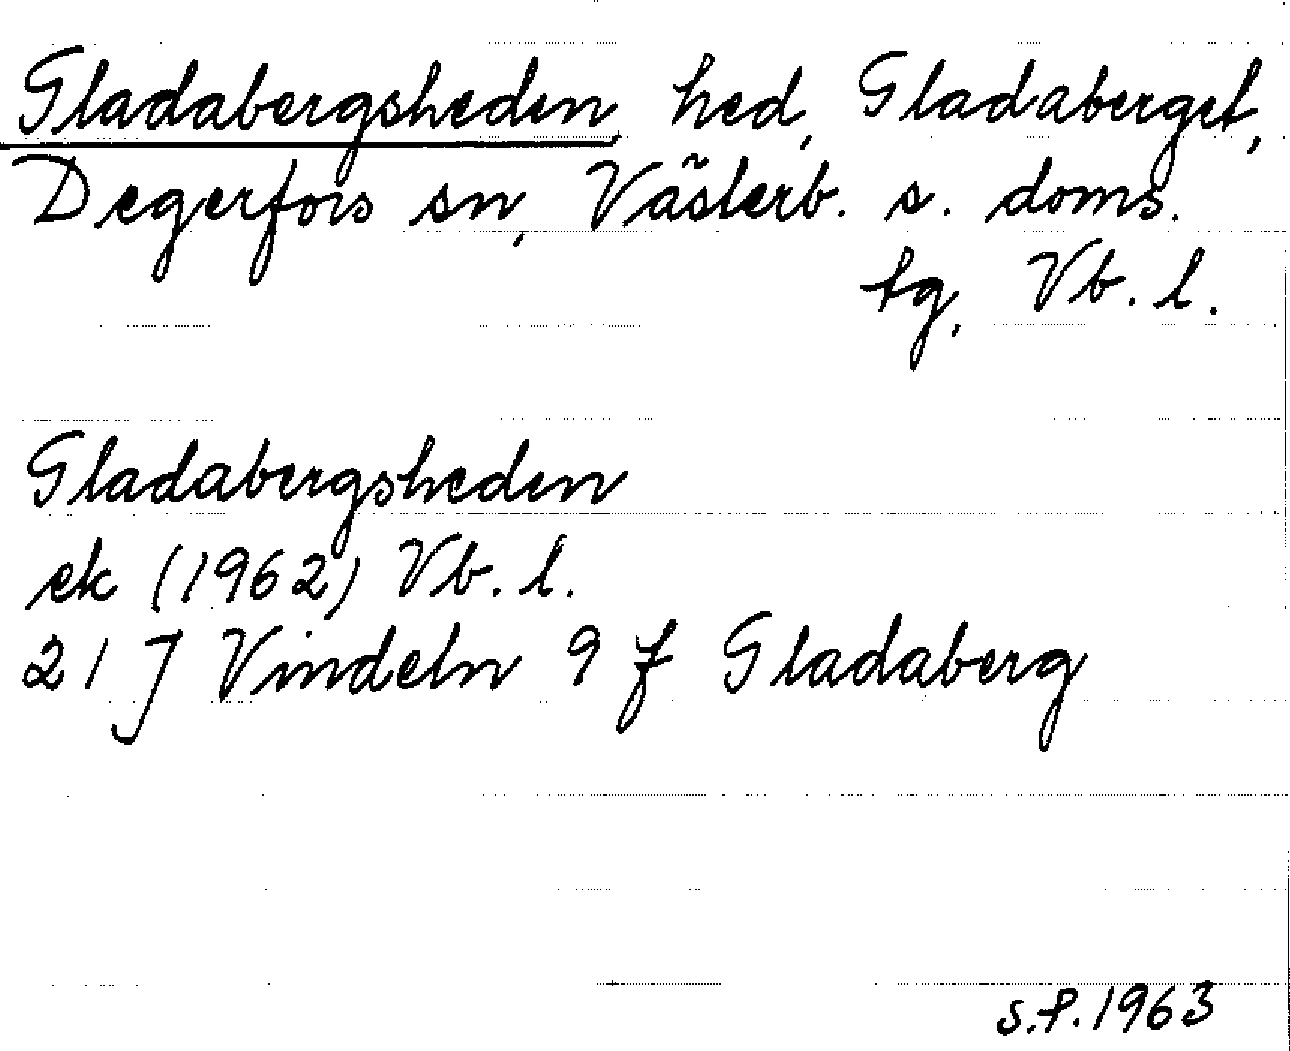 Gladabergsheden, hed, Gladaberget,
Degerfors sn, Västerb. s. doms.
tg, Vb. l.
Gladabergsheden
ek (1962) Vb. l.
21 J Vindeln 9 f Gladaberg
s.f. 1963